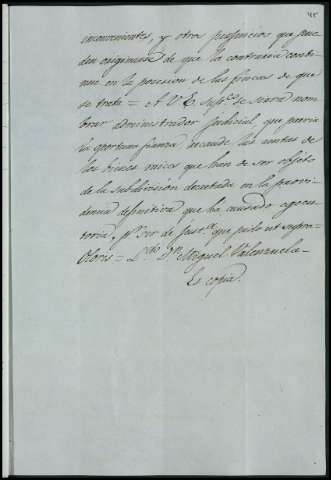 45
inconvenientes, y otros perjuicios que pue
den originarse de que la contraria conti
nue en la posesion de las fincas de que
se trata = A V. E. Supco. se sirva nom
brar administrador judicial, que previa
la oportuna fianza, recaude las rentas de
los bienes raices que han de ser objeto
de la subdivision decretada en la provi
dencia definitiva que ha causado ejecu
toria, pr. ser de justa. que pido ut supra =
Otoris = Ldo. Dn. Miguel Valenzuela =
Es copia.